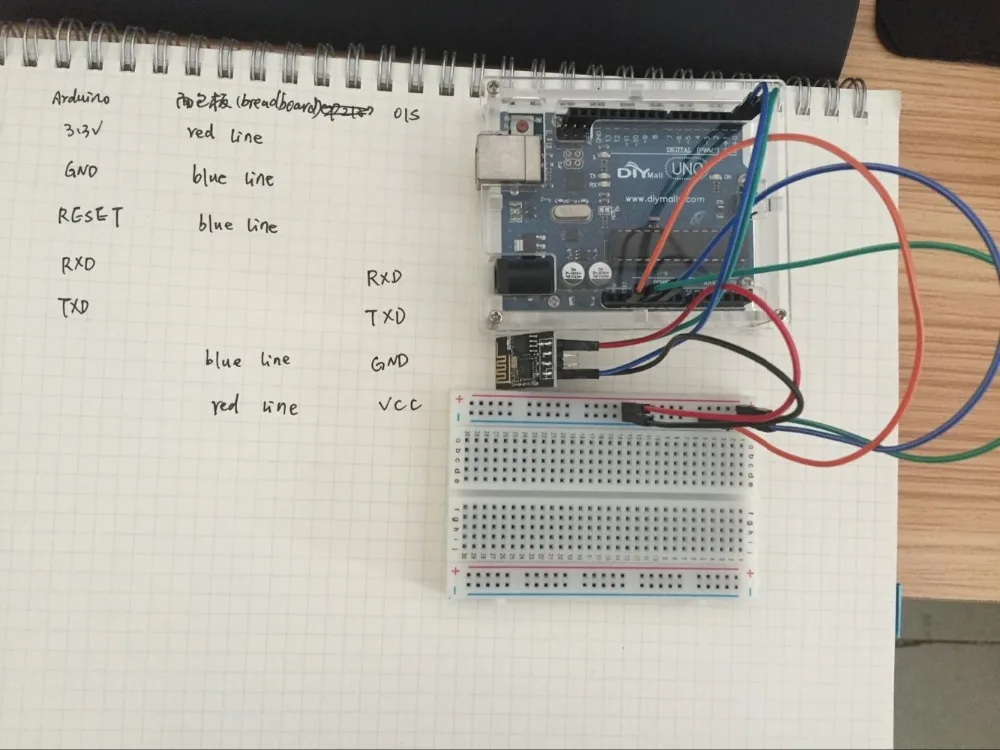 Arduino 面包板(breadboard) 01S
3.3V red line
GND blue line
RESET blue line
RXD RXD
TXD TXD
blue line GND
red line VCC
DIGITAL (PWM~)
DIY Mall UNO
www.diymall.com
TX
RX
ON
a b c d e
f g h i j